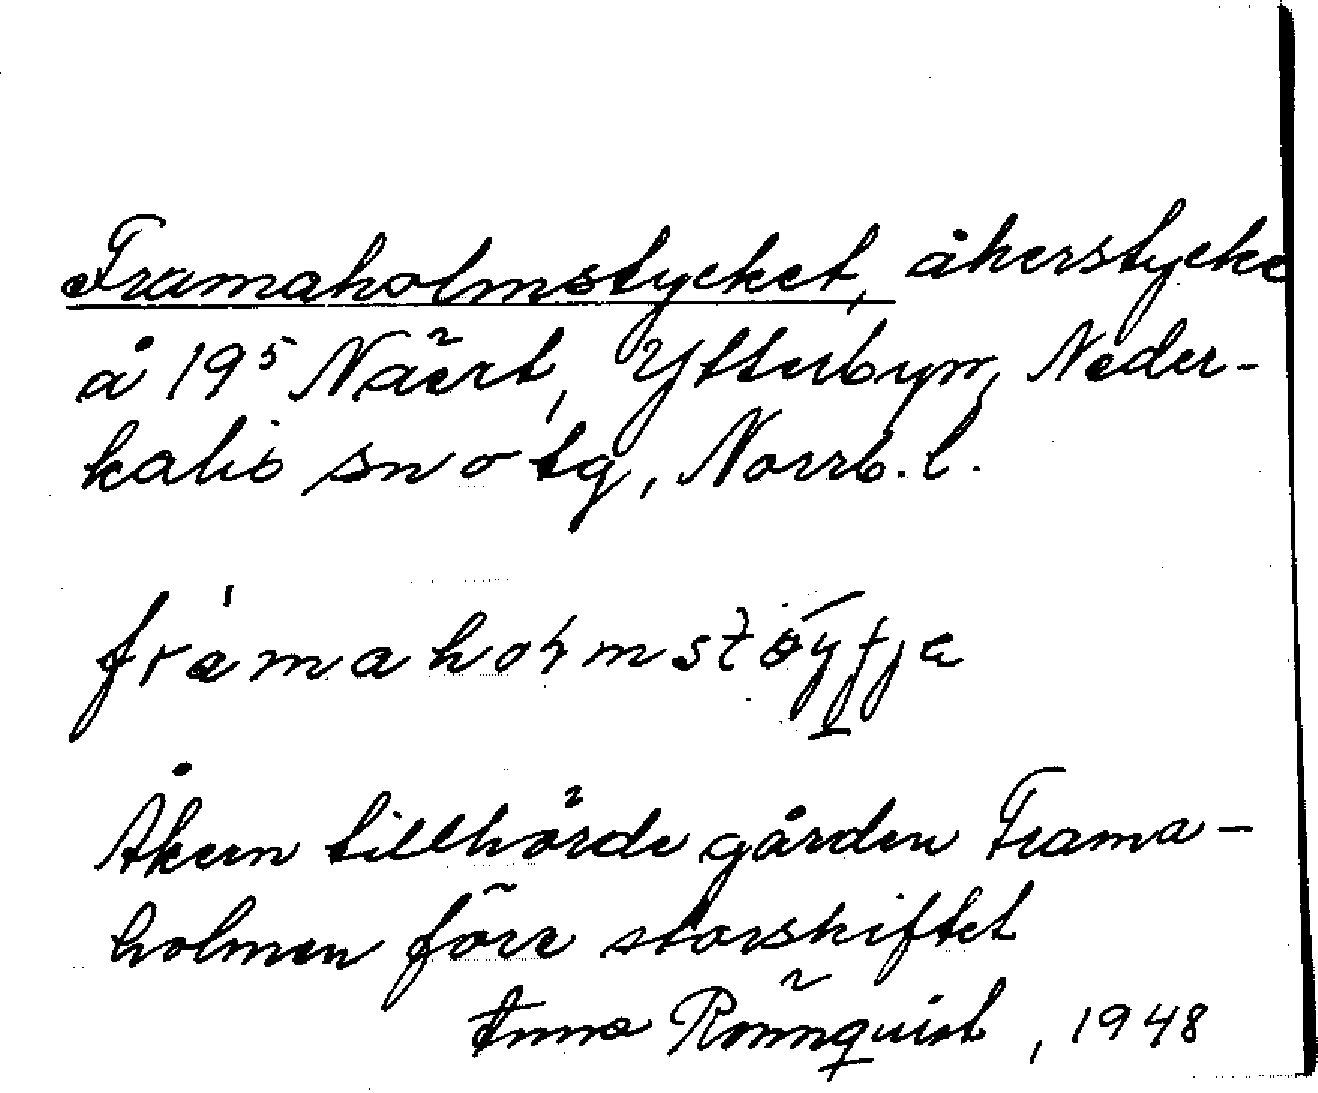 Framaholmstycket, åkerstycke
å 19⁵ Näert, Ytterbyn, Neder-
kalix sn o tg, Norrb. l.
Åkern tillhörde gården Frama-
holmen före storskiftet
Anna Rönnquist, 1948